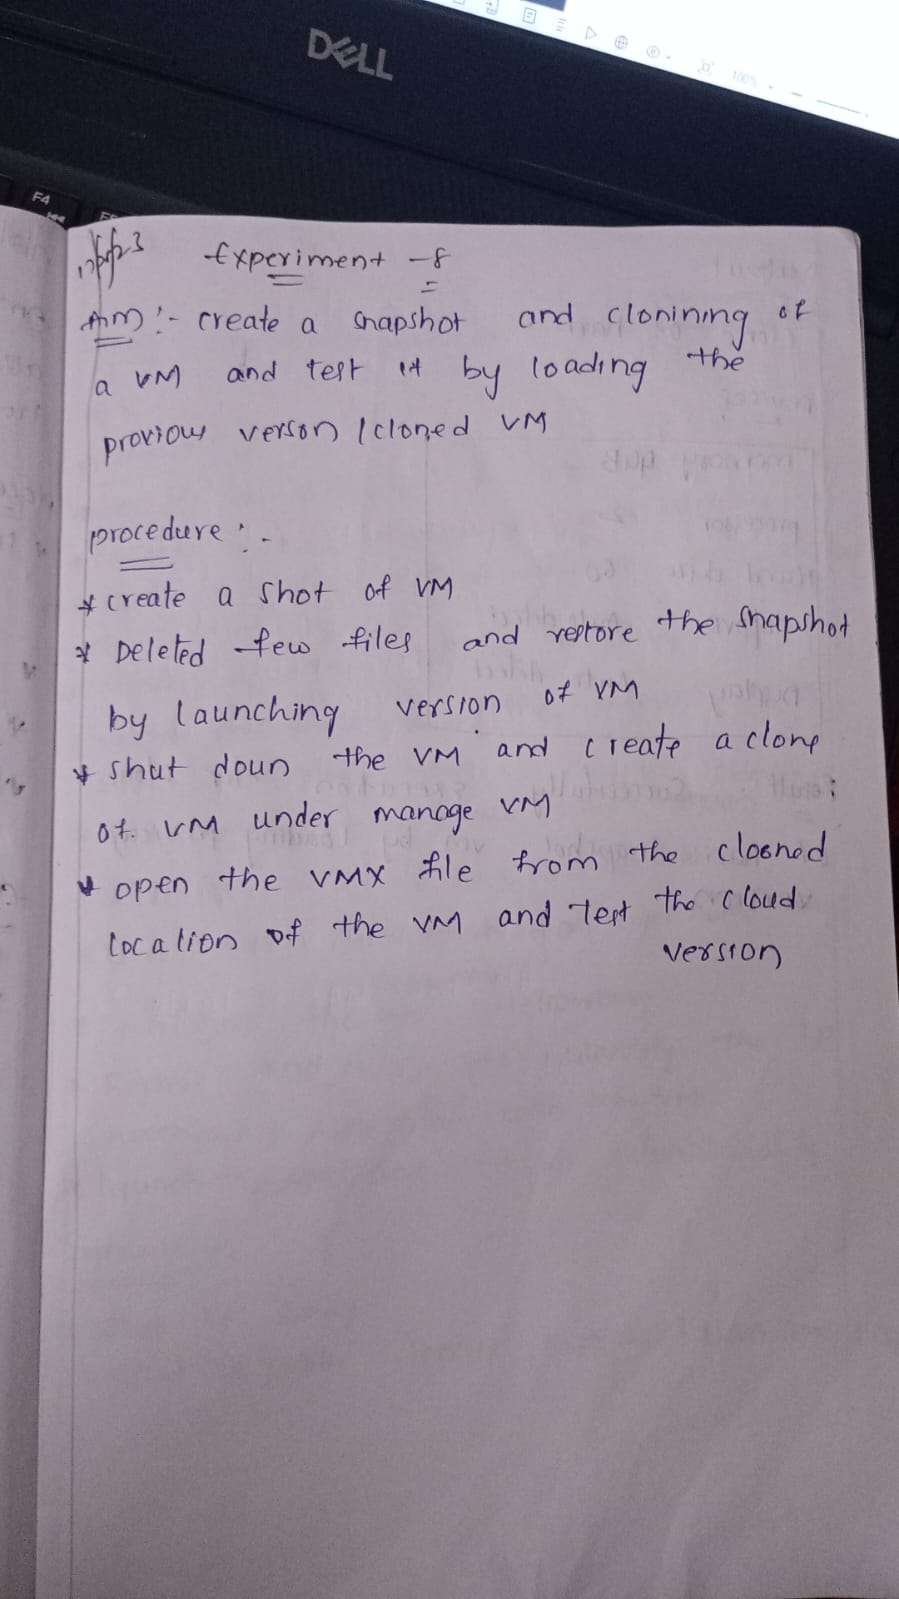 DELL
100%
F4
Experiment - 8
Aim :- create a snapshot and clonining of
a VM and test it by loading the
previous verson / cloned VM
procedure :-
* create a shot of VM
* Deleted few files and restore the snapshot
by launching version of VM
* shut doun the VM and create a clone
of VM under manage VM
* open the VMX file from the closned
location of the VM and Test the cloud
version